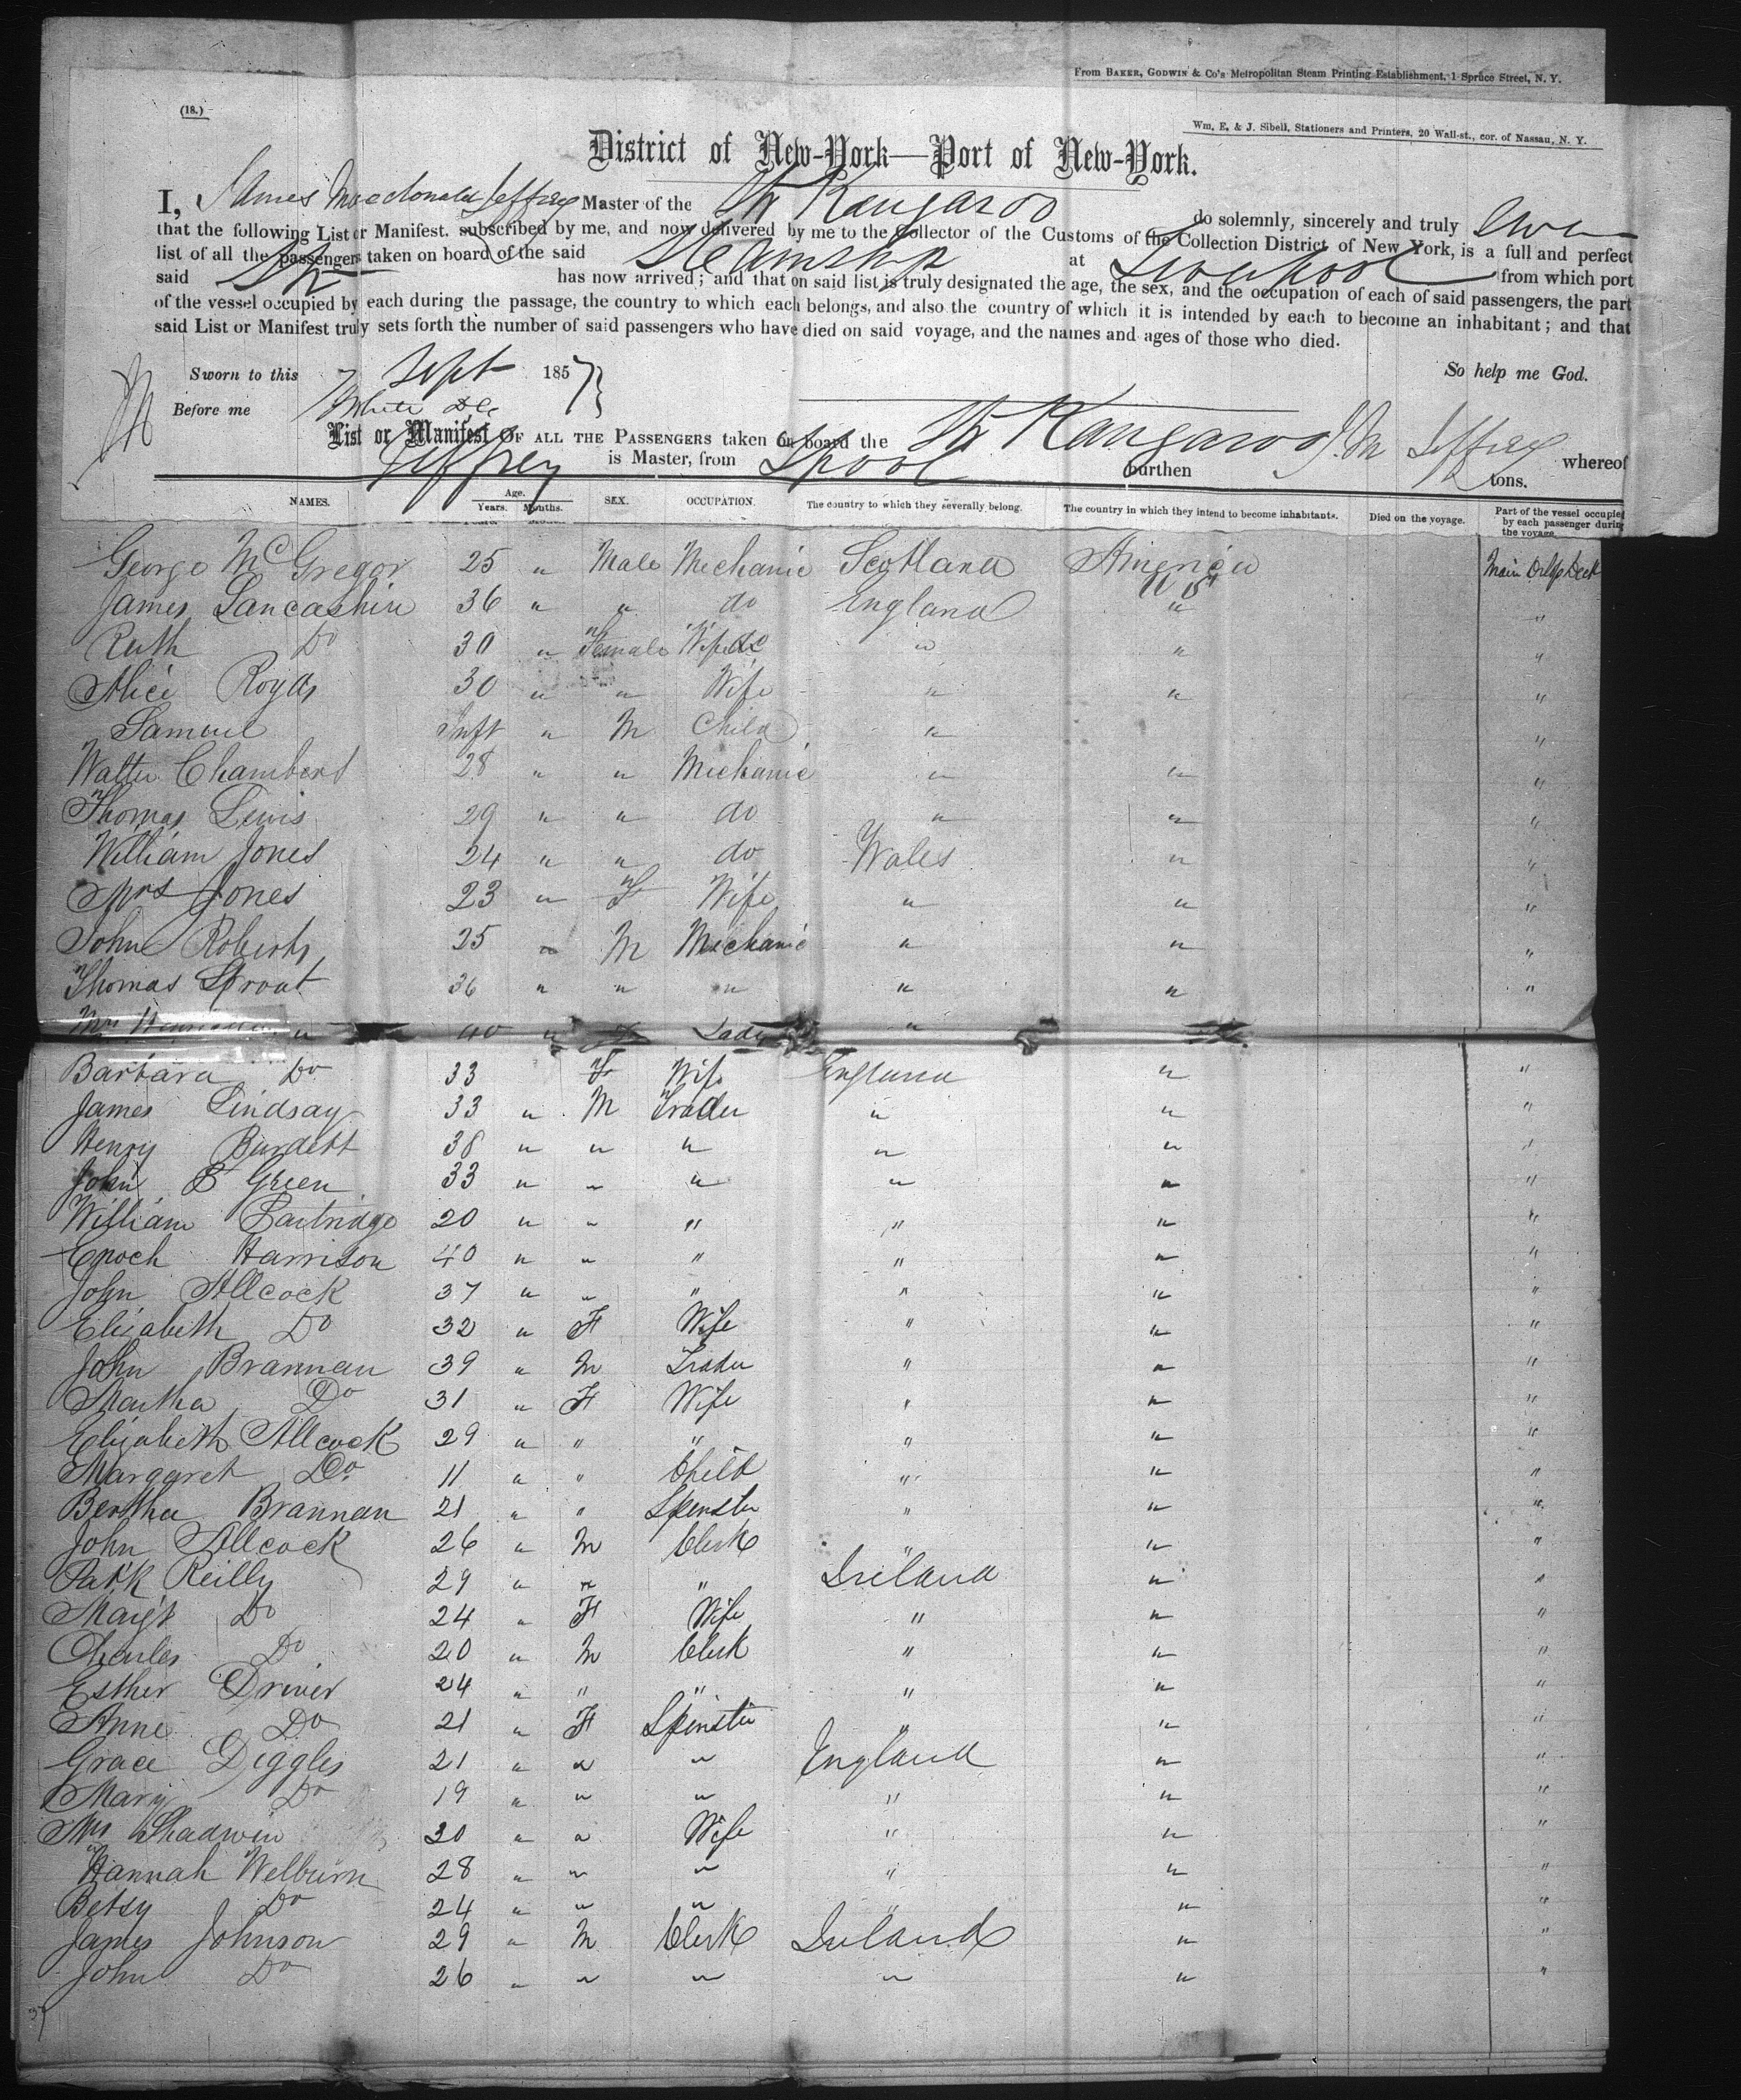 From BAKER, GODWIN & Co's Metropolitan Steam Printing Establishment, 1 Spruce Street, N. Y.
(18.)
Wm. E. & J. Sibell, Stationers and Printers, 20 Wall-st., cor. of Nassau, N. Y.
District of New-York—Port of New-York.
I, James Macdonald Jeffrey Master of the Str Kangaroo do solemnly, sincerely and truly swear
that the following List or Manifest. subscribed by me, and now delivered by me to the Collector of the Customs of the Collection District of New York, is a full and perfect
list of all the passengers taken on board of the said Steamship at Liverpool from which port
said Str has now arrived; and that on said list is truly designated the age, the sex, and the occupation of each of said passengers, the part
of the vessel occupied by each during the passage, the country to which each belongs, and also the country of which it is intended by each to become an inhabitant; and that
said List or Manifest truly sets forth the number of said passengers who have died on said voyage, and the names and ages of those who died.
Sworn to this 7 Sept 1857 So help me God.
Before me White
List or Manifest OF ALL THE PASSENGERS taken on board the Str Kangaroo J. M Jeffrey whereof
Jeffrey is Master, from Lpool burthen tons.
NAMES. Age. Years. Months. SEX. OCCUPATION. The country to which they severally belong. The country in which they intend to become inhabitants. Died on the voyage. Part of the vessel occupied by each passenger during the voyage.
George McGregor 25 " Male Mechanic Scotland America Main Deck
James Lancashire 36 " " do England U S "
Ruth Do 30 " Female Wife " " "
Alice Royds 30 " " Wife " " "
Samuel Inft " M Child " "
Walter Chambers 28 " " Mechanic " " "
Thomas Lewis 29 " " do " " "
William Jones 24 " " do Wales " "
Mrs Jones 23 " F Wife " " "
John Roberts 25 " M Mechanic " " "
Thomas Sprout 36 " " " " " "
Mrs 40 " Lady "
Barbara Do 33 F Wife England " "
James Lindsay 33 " M Trader " " "
Henry Burdett 38 " " " " " "
John B Green 33 " " " " " "
William Partridge 20 " " " " " "
Enoch Harrison 40 " " " " " "
John Allcock 37 " " " " " "
Elizabeth Do 32 " F Wife " " "
John Brannan 39 " M Trader " " "
Martha Do 31 " F Wife " " "
Elizabeth Allcock 29 " " " " " "
Margaret Do. 11 " " Child " " "
Bertha Brannan 21 " " Spinster " " "
John Allcock 26 " M Clerk " " "
Patk Reilly 29 " " " Ireland " "
Margt Do 24 " F Wife " " "
Charles Do 20 " M Clerk " " "
Esther Driver 24 " " " " " "
Anne Do 21 " F Spinster " " "
Grace Diggles 21 " " " England " "
Mary Do 19 " " " " " "
Mrs Shadwin 30 " " Wife " " "
Hannah Welburn 28 " " " " " "
Betsy Do 24 " " " " " "
James Johnson 29 " M Clerk Ireland " "
John Do 26 " " " " " "
37